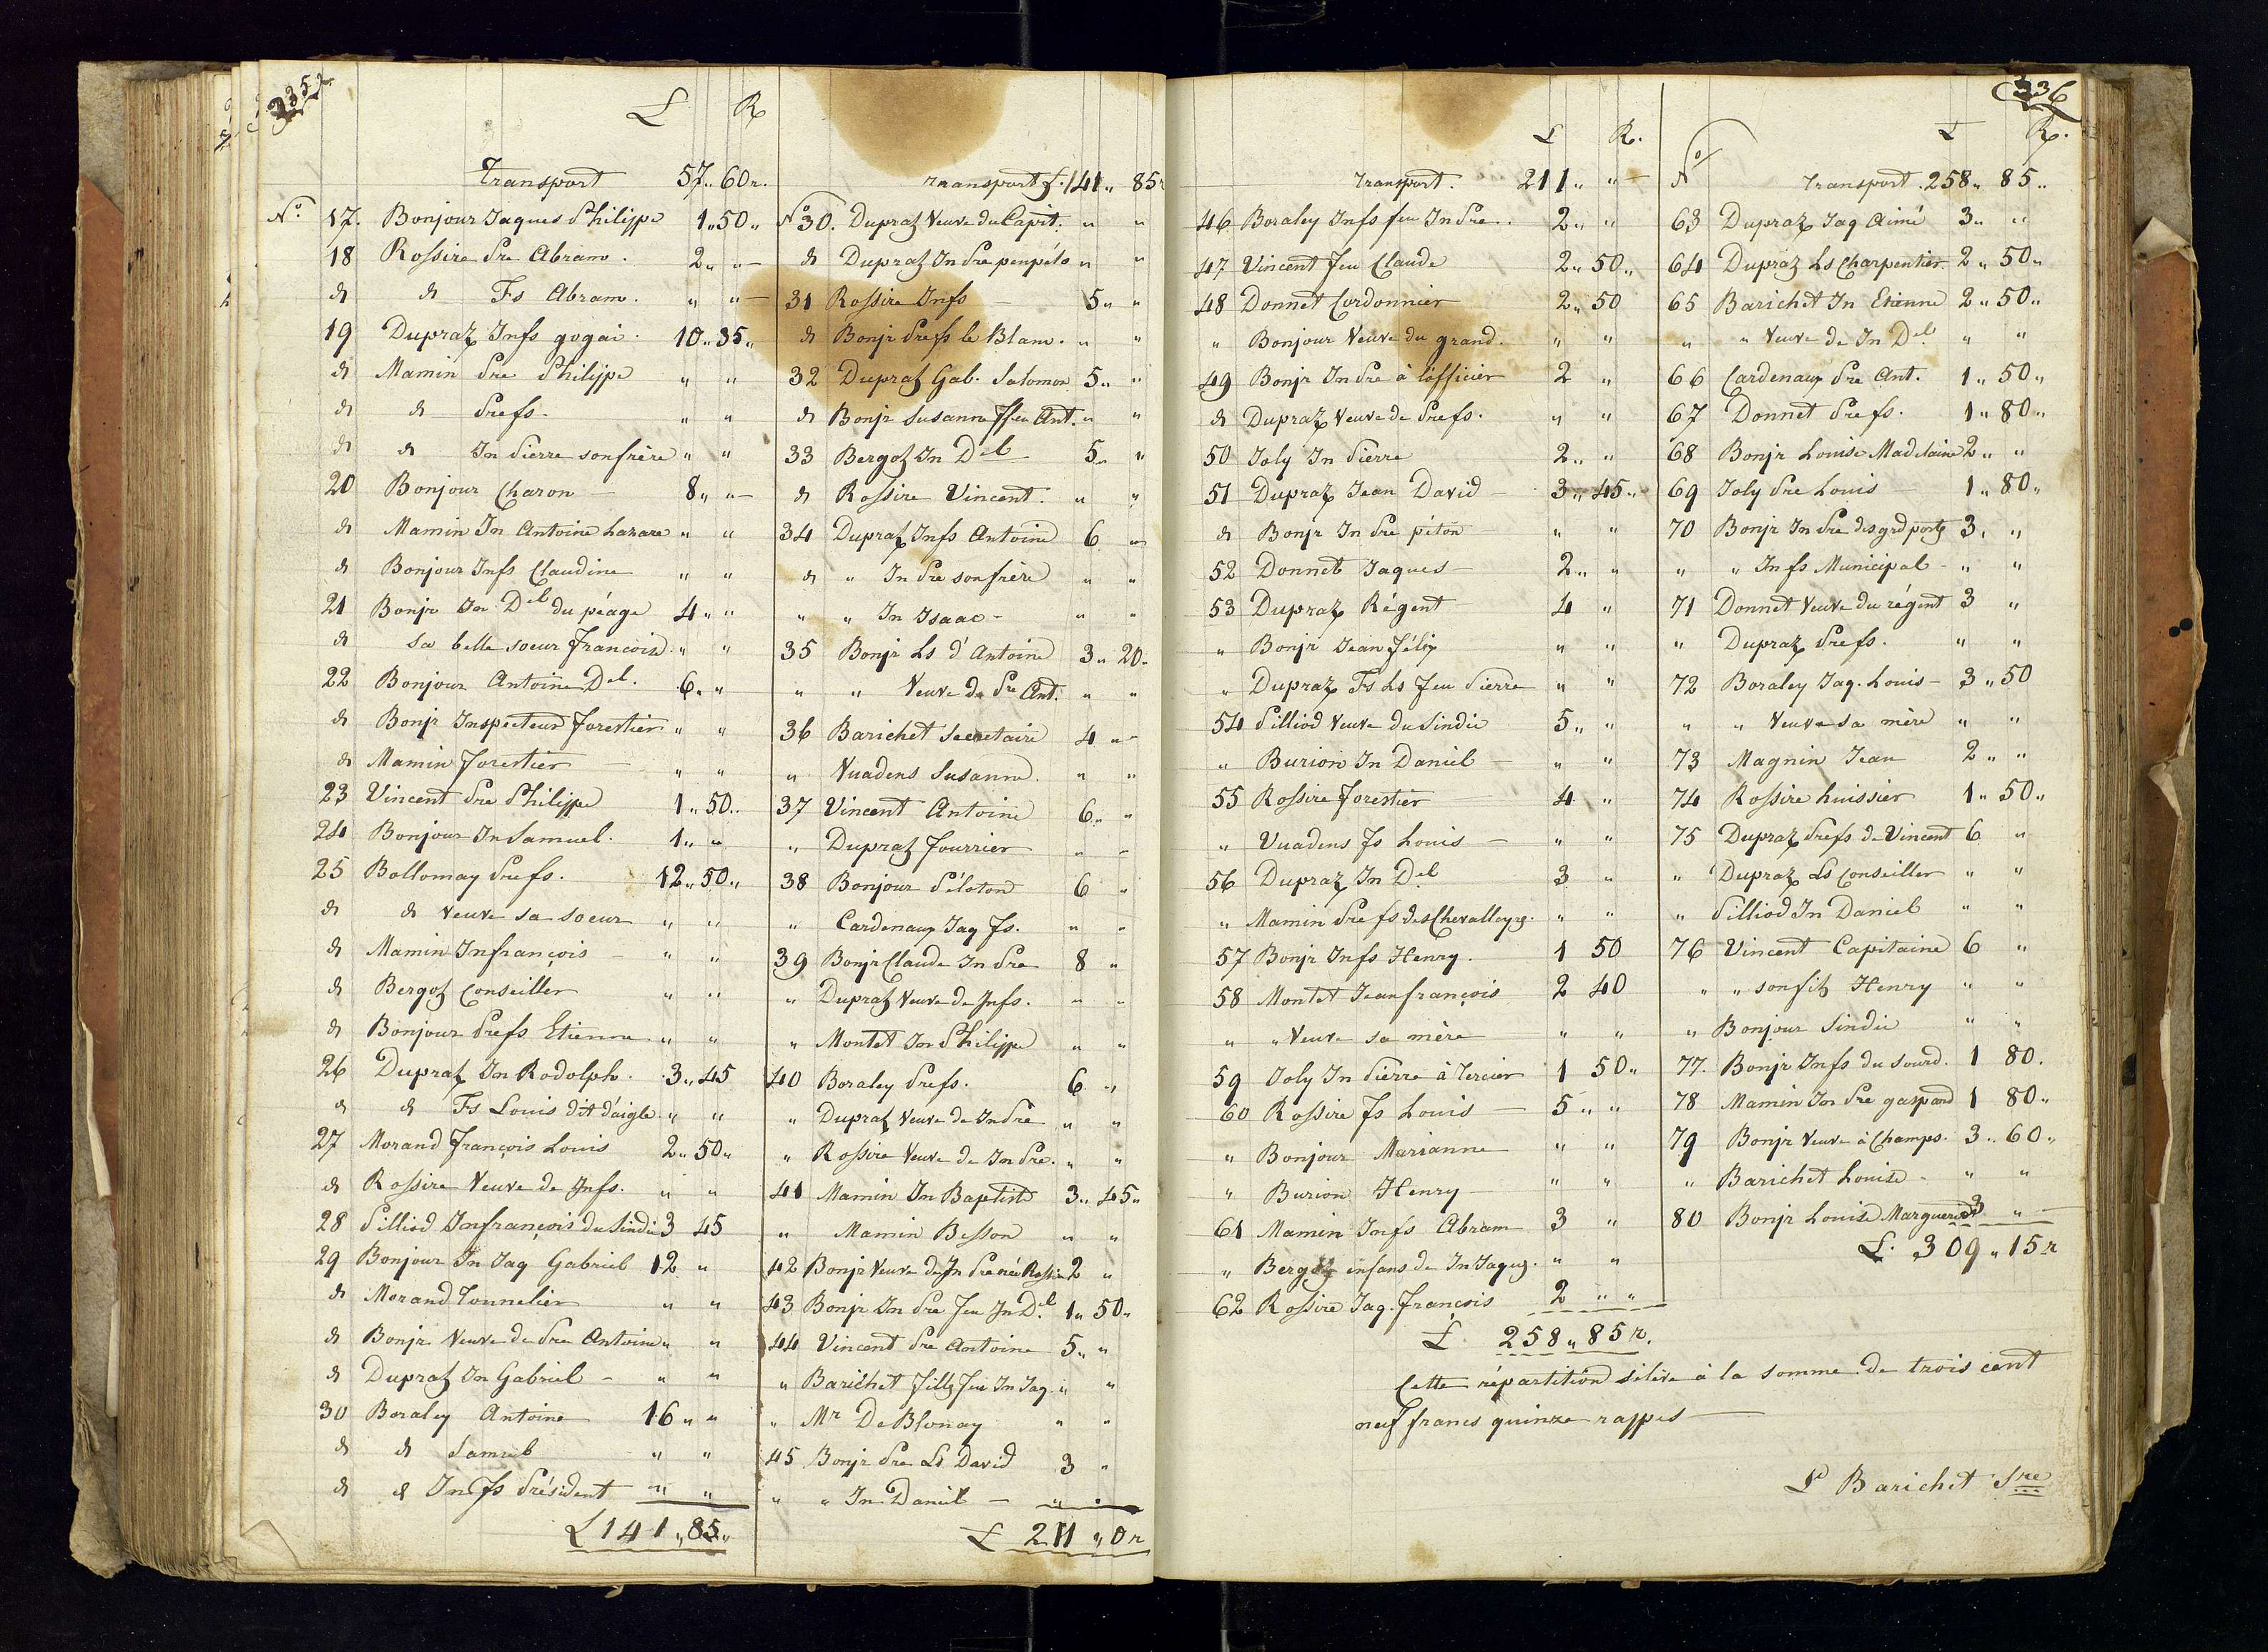 335
£ R
Transport 57 „ 60 r.
No. 17. Bonjour Jaques Philippe 1 „ 50 „
18 Rossire Pre Abram. 2 „ „ –
d d Fs Abram. „ „ –
19 Dupraz Jnfs gogai. 10 „ 35 „
d Mamin Pre Philippe „ „
d d Prefs. „ „
d d Jn Pierre son frère „ „
20 Bonjour Charon – 8 „ „ –
d Mamin Jn Antoine Lazare „ „
d Bonjour Jnfs Claudine „ „
21 Bonjr Jn Del du péage 4 „ „
d Sa belle soeur françoise. „ „
22 Bonjour Antoine Del. 6 „ „
d Bonjr Inspecteur forestier „ „
d Mamin forestier – „ „
23 Vincent Pre Philippe 1 „ 50 „
24 Bonjour Jn Samuel. 1 „ „
25 Bollomay Prefs. 12 „ 50 „
d d veuve sa soeur „ „
d Mamin Jnfrançois – „ „
d Bergoz Conseiller „ „
d Bonjour Prefs Etienne „ „
26 Dupraz Jn Rodolph. 3 „ 45
d d Fs Louis dit d'aigle „ „
27 Morand françois Louis 2 „ 50 „
d Rossire Veuve de Jnfs. „ „
28 Pilliod Jnfrançois du Sindic 3 45
29 Bonjour Jn Jaq Gabriel 12 „
d Morand Tonnelier „ „
d Bonjr Veuve de Pre Antoine „ „
d Dupraz Jn Gabriel – „ „
30 Boraley Antoine 16 „ „
d d Samuel „ „
d d Jn fs Président – „ „
£ 141 „ 85 „
Transport f. 141 „ 85 r
No 30. Dupraz Veuve du Capit. „ „
d Dupraz Jn Pre „ „
31 Rossire Jnfs – 5 „ „
d Bonjr Prefs le Blanc. „ „
32 Dupraz Gab. Salomon 5 „ „
d Bonjr Susanne ffeu Ant. „ „
33 Bergoz Jn Del 5 „ „
d Rossire Vincent. „ „
34 Dupraz Jnfs Antoine 6 „
d „ Jn Pre son frère „ „
„ „ Jn Isaac – „ „
35 Bonjr Ls d'Antoine 3 „ 20 „
„ „ Veuve de Pre Ant. „ „
36 Barichet Secretaire 4 „ –
„ Vuadens Susanne. „ „
37 Vincent Antoine 6 „ „
„ Dupraz fourrier „ –
38 Bonjour Péloton 6 „
„ Cardenaux Jaq fs. „ „
39 Bonjr Claude Jn Pre 8 „
„ Dupraz Veuve de Jnfs. „ „
„ Montet Jn Philippe „ „
40 Boraley Prefs. 6 „
„ Dupraz Veuve de Jn Pre „ „
„ Rossire Veuve de Jn Pre. „ „
41 Mamin Jn Baptiste 3 „ 45 „
„ Mamin Besson „ „
42 Bonjr Veuve de Jn Pre née Rossire 2 „
43 Bonjr Jn Pre feu Jn Del 1 „ 50 „
44 Vincent Pre Antoine 5 „ „
„ Barichet filles feu Jn Jaq. „ „
„ Mr De Blonay „ „
45 Bonjr Pre Ls David 3 „
„ „ Jn Daniel – „ „
£ 211 „ 0 r
336
£ R.
Transport. 211 „ „ –
46 Boraley Jnfs feu Jn Pre. 2 „ „
47 Vincent feu Claude 2 „ 50 „
48 Donnet Cordonnier 2 „ 50
„ Bonjour Veuve du grand. „ „
49 Bonjr Jn Pre à l'officier 2 „
d Dupraz Veuve de Prefs. „ „
50 Joly Jn Pierre 2 „ „
51 Dupraz Jean David – 3 „ 45 „
d Bonjr Jn Pre péton „ „
52 Donnet Jaques – 2 „ „
53 Dupraz Régent 4 „
„ Bonjr Jean félix „ „
„ Dupraz Fs Ls feu Pierre „ „
54 Pilliod Veuve du Sindic 5 „ „
„ Burion Jn Daniel – „ „
55 Rossire forestier 4 „
„ Vuadens fs Louis – „ „
56 Dupraz Jn Del 3 „
„ Mamin Prefs des Chevalleyres. „ „
57 Bonjr Jnfs Henry. 1 50
58 Montet Jeanfrançois 2 40
„ „ Veuve sa mère „ „
59 Joly Jn Pierre à Tercier 1 50 „
60 Rossire fs Louis – 5 „ „
„ Bonjour Marianne „ „
„ Burion Henry „ „
61 Mamin Jnfs Abram 3 „
„ Bergoz enfans de Jn Jaques. „ „
62 Rossire Jaq. françois 2 „ „
£ 258 „ 85 r.
£ R.
No Transport 258 „ 85 „
63 Dupraz Jaq Aimé 3 „ „
64 Dupraz Ls Charpentier 2 „ 50 „
65 Barichet Jn Etienne 2 „ 50 „
„ „ Veuve de Jn Del „ „
66 Cardenaux Pre Ant. 1 „ 50 „
67 Donnet Prefs. 1 „ 80 „
68 Bonjr Louise Madelaine 2 „ „
69 Joly Pre Louis 1 „ 80 „
70 Bonjr Jn Pre des grd portes 3 „ „
„ „ Jnfs Municipal – „ „
71 Donnet Veuve du régent 3 „
„ Dupraz Prefs. „ „
72 Boraley Jaq. Louis – 3 „ 50
„ „ Veuve sa mère „ „
73 Magnin Jean 2 „ „
74 Rossire huissier 1 „ 50 „
75 Dupraz Prefs de Vincent 6 „
„ Dupraz Ls Conseiller „ „
„ Pilliod Jn Daniel „ „
76 Vincent Capitaine 6 „
„ „ son fils Henry „ „
„ Bonjour Sindic „ „
77. Bonjr Jnfs du Sourd. 1 80.
78 Mamin Jn Pre gaspard 1 80 „
79 Bonjr Veuve à Champs. 3 „ 60 „
„ Barichet Louise – „ „
80 Bonjr Louise Marguerite 3 „ –
£. 309 „ 15 r
Cette répartition s'élève à la somme de trois cent
neuf francs quinze rappes –
P Barichet Sre